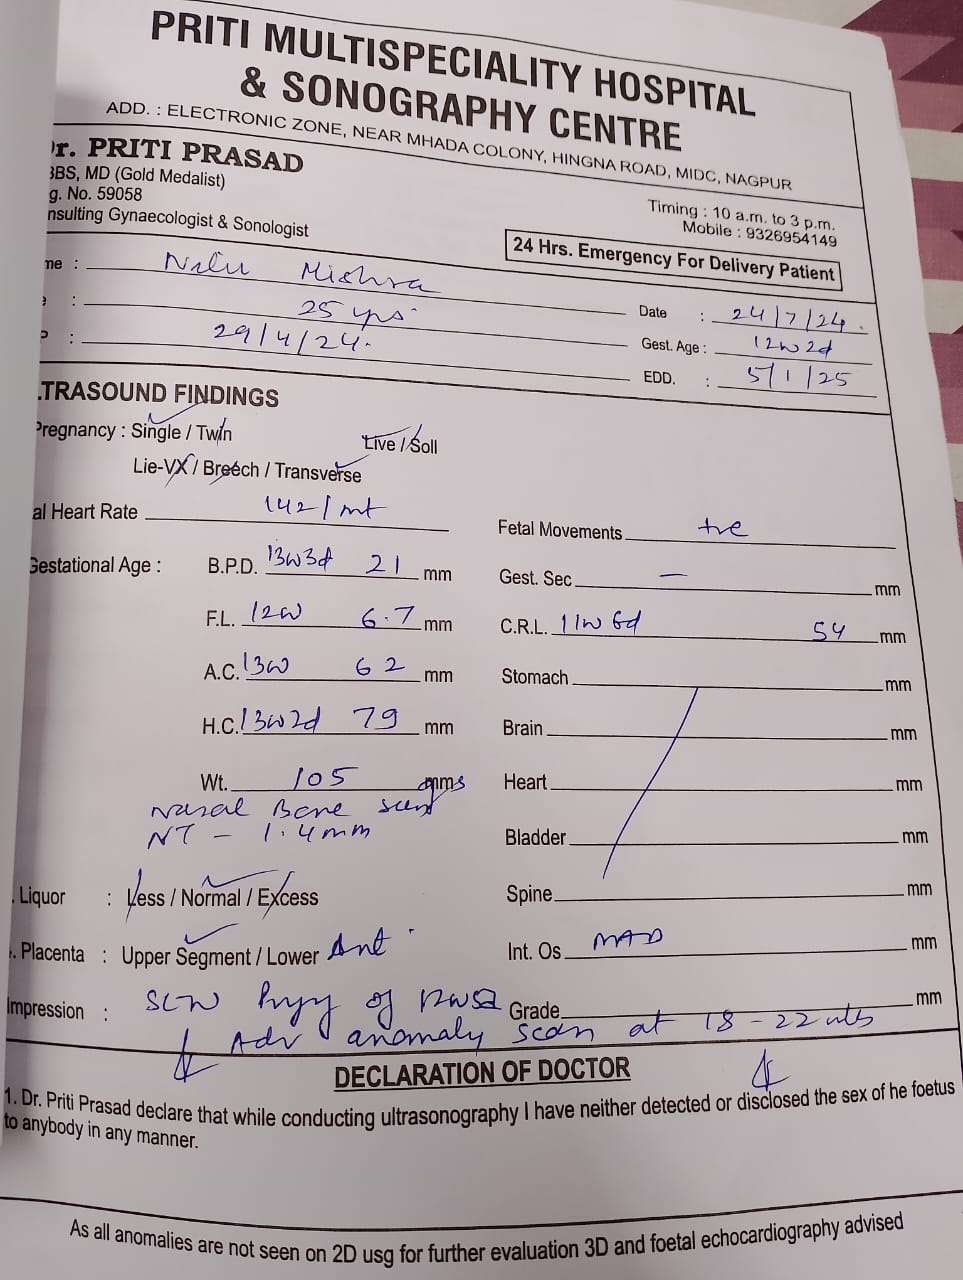 PRITI MULTISPECIALITY HOSPITAL
& SONOGRAPHY CENTRE
ADD. : ELECTRONIC ZONE, NEAR MHADA COLONY, HINGNA ROAD, MIDC, NAGPUR
r. PRITI PRASAD
BBS, MD (Gold Medalist)
g. No. 59058
nsulting Gynaecologist & Sonologist
Timing : 10 a.m. to 3 p.m.
Mobile : 9326954149
24 Hrs. Emergency For Delivery Patient
me : Nilu Mishra
: 25 yrs.
P : 29/4/24.
Date : 24/7/24.
Gest. Age : 12w 2d
EDD. : 5/1/25
TRASOUND FINDINGS
Pregnancy : Single / Twin Live / Soll
Lie-VX / Breech / Transverse
al Heart Rate 142/mt
Fetal Movements +ve
Gestational Age : B.P.D. 13w3d 21 mm
Gest. Sec — mm
F.L. 12w 6.7 mm
C.R.L. 11w 6d 54 mm
A.C. 13w 62 mm
Stomach mm
H.C. 13w2d 79 mm
Brain mm
Wt. 105 gms
Heart mm
Nasal Bone seen
NT - 1.4mm
Bladder mm
Liquor : Less / Normal / Excess
Spine mm
. Placenta : Upper Segment / Lower Ant
Int. Os mm
Impression : of
Grade mm
Adv anomaly scan at 18-22 wks
DECLARATION OF DOCTOR
1. Dr. Priti Prasad declare that while conducting ultrasonography I have neither detected or disclosed the sex of he foetus
to anybody in any manner.
As all anomalies are not seen on 2D usg for further evaluation 3D and foetal echocardiography advised